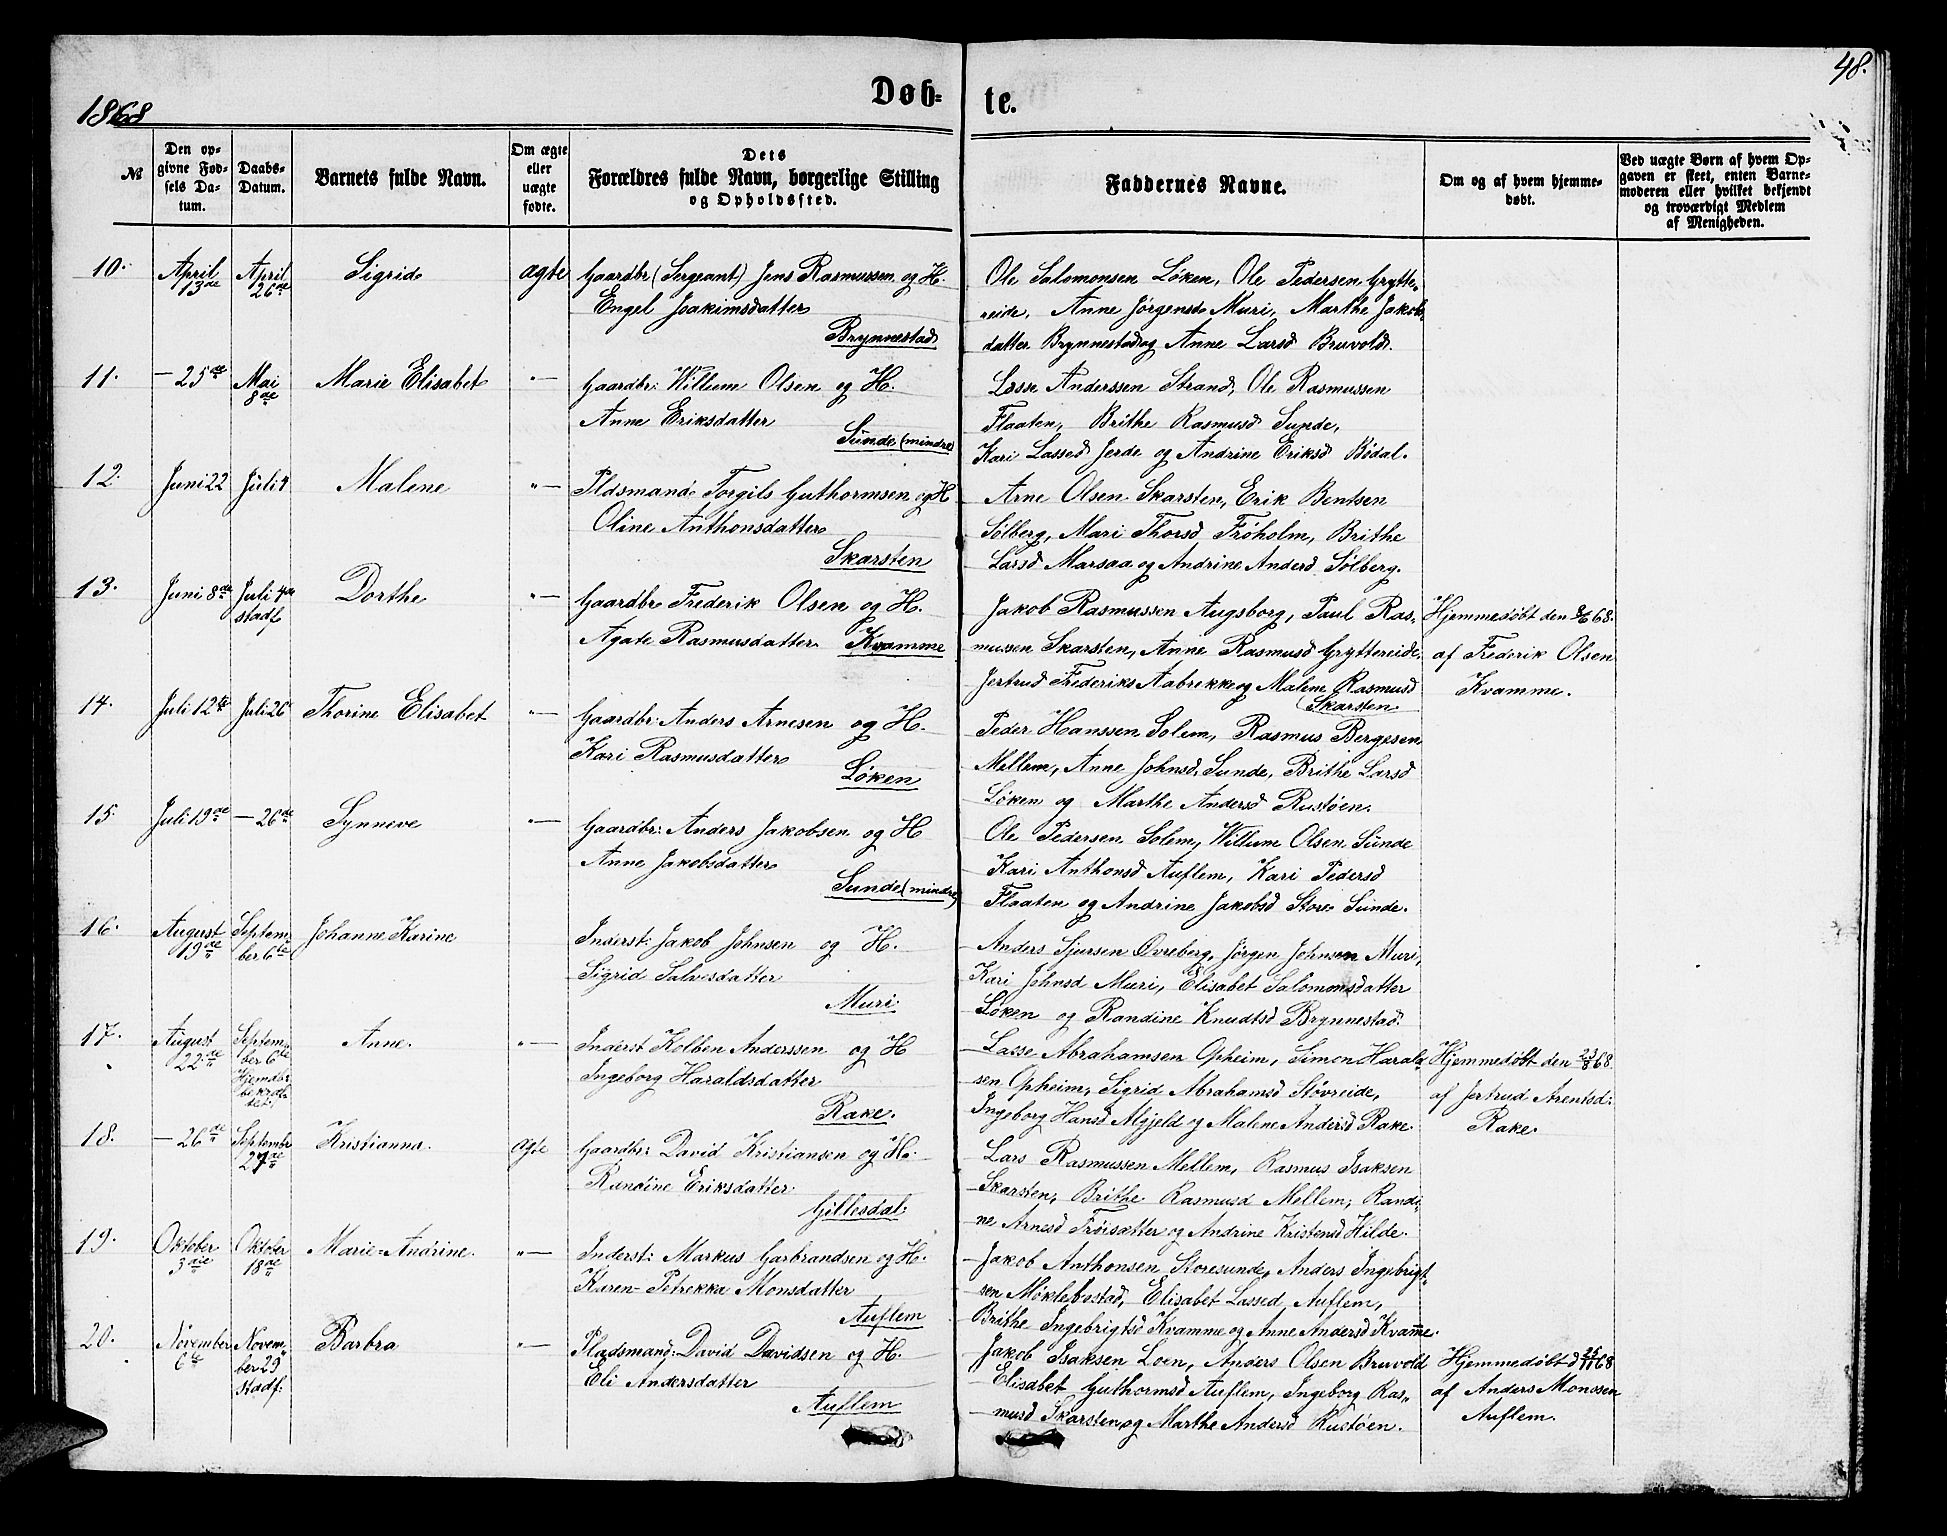 1868
Døb-
te.
48.
№
Den op-
givne Fød-
sels Da-
tum.
Daabs-
Datum.
Barnets fulde Navn.
Om ægte
eller
uægte
fødte.
Dets
Forældres fulde Navn, borgerlige Stilling
og Opholdssted.
Faddernes Navne.
Om og af hvem hjemme-
døbt.
Ved uægte Børn af hvem Op-
gaven er skeet, enten Barne-
moderen eller hvilket bekjendt
og troværdigt Medlem
af Menigheden.
10. April 13de April 26de Sigrid ægte Gaardbr (Sergeant) Jens Rasmussen og H.
Engel Joakimsdatter
Brynnestad
Ole Salomonsen Løken, Ole Pedersen Grytte-
reide, Anne Jørgensd Muri, Marthe Jakobs-
datter Brynnestad og Anne Larsd Bruvold.
11. — 25de Mai 8de Marie Elisabet "— Gaardbr: Willum Olsen og H.
Anne Eriksdatter
Sunde (mindre)
Lasse Anderssen Strand, Ole Rasmussen
Flaaten, Brithe Rasmusd Sunde,
Kari Lassed Jerde og Andrine Eriksd Bødal.
12. Juni 22 Juli 4 Malene "— Pldsmand Torgils Guthormsen og H
Oline Anthonsdatter
Skarsten
Arne Olsen Skarsten, Erik Bentsen
Sølberg, Mari Thorsd Frøholm, Brithe
Larsd Marsaa og Andrine Andersd Sølberg.
13. Juni 8de Juli 4de
stadf
Dorthe "— Gaardbr Frederik Olsen og H.
Agate Rasmusdatter Kvamme
Jakob Rasmussen Augsborg, Paul Ras-
mussen Skarsten, Anne Rasmusd Gryttereide,
Jertrud Frederiks Aabrekke og Malene Rasmusd
(Skarsten
Hjemmedøbt den 8/6 68.
af Frederik Olsen
Kvamme.
14. Juli 12te Juli 26 Thorine Elisabet "— Gaardbr: Anders Arnesen og H.
Kari Rasmusdatter
Løken
Peder Hanssen Solem, Rasmus Bergesen
Mellem, Anne Johnsd, Sunde, Brithe Larsd
Løken og Marthe Andersd Rustøen.
15. Juli 19de — 26de Synneve "— Gaardbr: Anders Jakobsen og H
Anne Jakobsdatter
Sunde (mindre)
Ole Pedersen Solem, Willum Olsen Sunde
Kari Anthonsd Auflem, Kari Pedersd
Flaaten og Andrine Jakobsd Store Sunde.
16. August 19de Septem-
ber 6te
Johanne Karine Inderst: Jakob Johnsen og H.
Sigrid Salvesdatter
Muri.
Anders Sjursen Øvreberg, Jørgen Johnsen Muri,
Kari Johnsd Muri, Elisabet Salomonsdatter
Løken og Randine Knudtsd Brynnestad.
17. August 22de Septem-
ber 6te
Hjemdbs
bekræf-
tet
Anne. "— Inderst Kolben Anderssen og H
Ingeborg Haraldsdatter
Rake.
Lasse Abrahamsen Opheim, Simon Harald-
sen Opheim, Sigrid Abrahamsd Støvreide,
Ingeborg Hansd Mgjeld og Malene Andersd Rake
Hjemmedøbt den 23/8 68
af Jertrud Arentsd:
Rake.
18. — 26de Septembr
27de
Kristianna. ægte Gaardbr: David Kristiansen og H.
Randine Eriksdatter
Gillesdal.
Lars Rasmussen Mellem, Rasmus Isaksen
Skarsten, Brithe Rasmusd Mellem, Randi-
ne Arnesd Frøisætter og Andrine Kristensd Hilde.
19. Oktober
3die
Oktober
18de
Marie-Andrine. "— Inderst: Markus Garbrandsen og H.
Karen-Petrekka Monsdatter
Auflem
Jakob Anthonsen Storesunde, Anders Ingebrigt-
sen Møklebostad, Elisabet Lassed Auflem,
Brithe Ingebrigtsd Kvamme og Anne Andersd Kvamme.
20. November
6te
Novem-
ber 29
stadf:
Barbra "— Pladsmand: David Davidsen og H.
Eli Andersdatter
Auflem
Jakob Isaksen Loen, Anders Olsen Bruvold
Elisabet Guthormsd Auflem, Ingeborg Ras-
musd Skarsten og Marthe Andersd Rustøen.
Hjemmedøbt d 25/11 68
af Anders Monssen
Auflem.